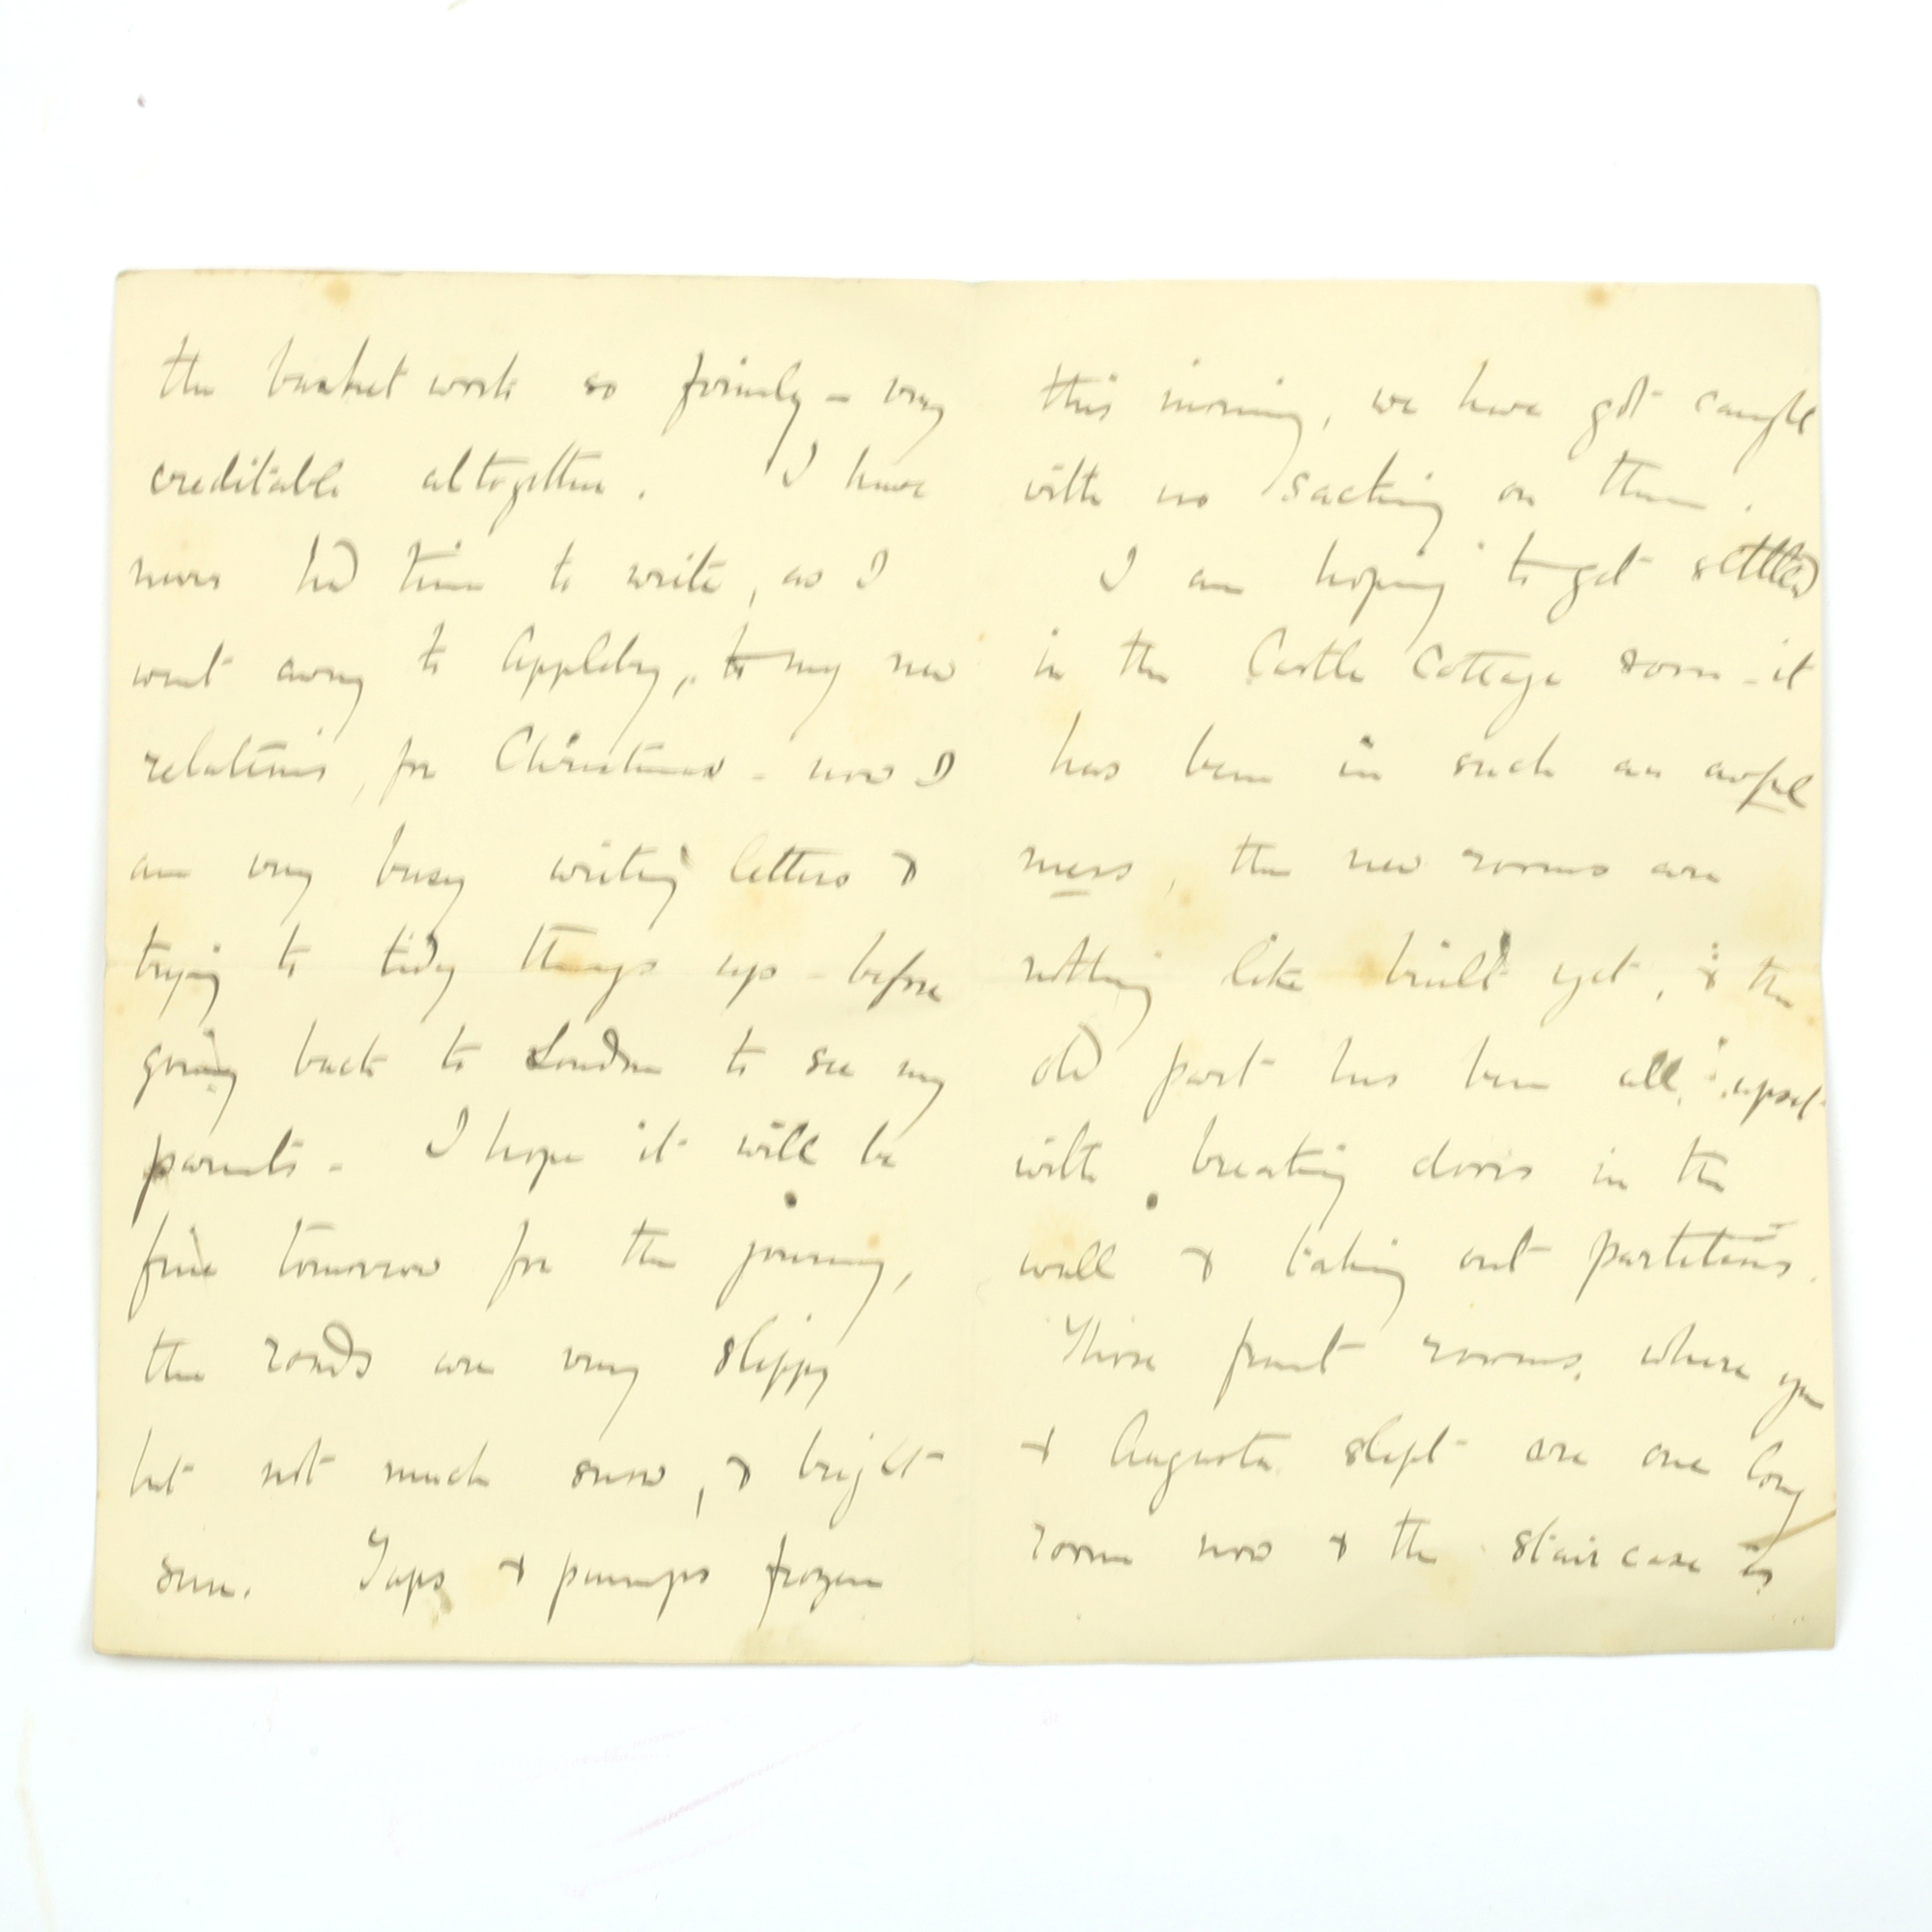 the basket work so firmly - very
creditable altogether. I have
never had time to write, as I
went away to Appleby, to my new
relations, for Christmas - now I
am very busy writing letters &
trying to tidy things up - before
going back to London to see my
parents - I hope it will be
fine tomorrow for the journey,
the roads are very slippy
but not much snow, & bright
sun. Taps & pumps frozen
this morning, we have got caught
with no sacking on them.
I am hoping to get settled
in the Castle Cottage soon - it
has been in such an awful
mess, the new rooms are
nothing like built yet, & the
old part has been all upset
with breaking doors in the
wall & taking out partitions.
Those front rooms, where you
& Augusta slept are one long
room now & the stair case is